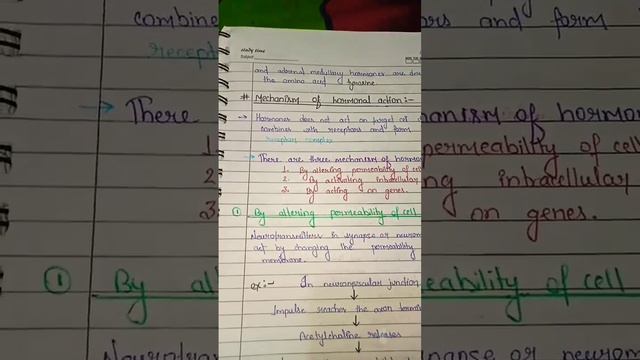 Study Time
Subject
and adrenal medullary hormones are
the amino acid tyrosine
# Mechanism of hormonal action:-
→ Hormones does not act on target
combines with receptors and form
receptors complex
→ There are three mechanism of hormon
1. By altering permeability of cell
2. By activating intracellular
3. By acting on genes.
① By altering permeability of cell
Neurotransmitters in synapse or neurom
act by changing the permeability
membrane.
ex:- In neuromuscular junction
↓
Impulse reaches the axon
↓
Acetylcholine releases
↓
combine
recepto
→ There
1.
2.
3.
① By alt
Neurotra
ors and form
anism of hormo
permeability of cell
ing intracellular
on genes.
eability of cell
apse or neurom